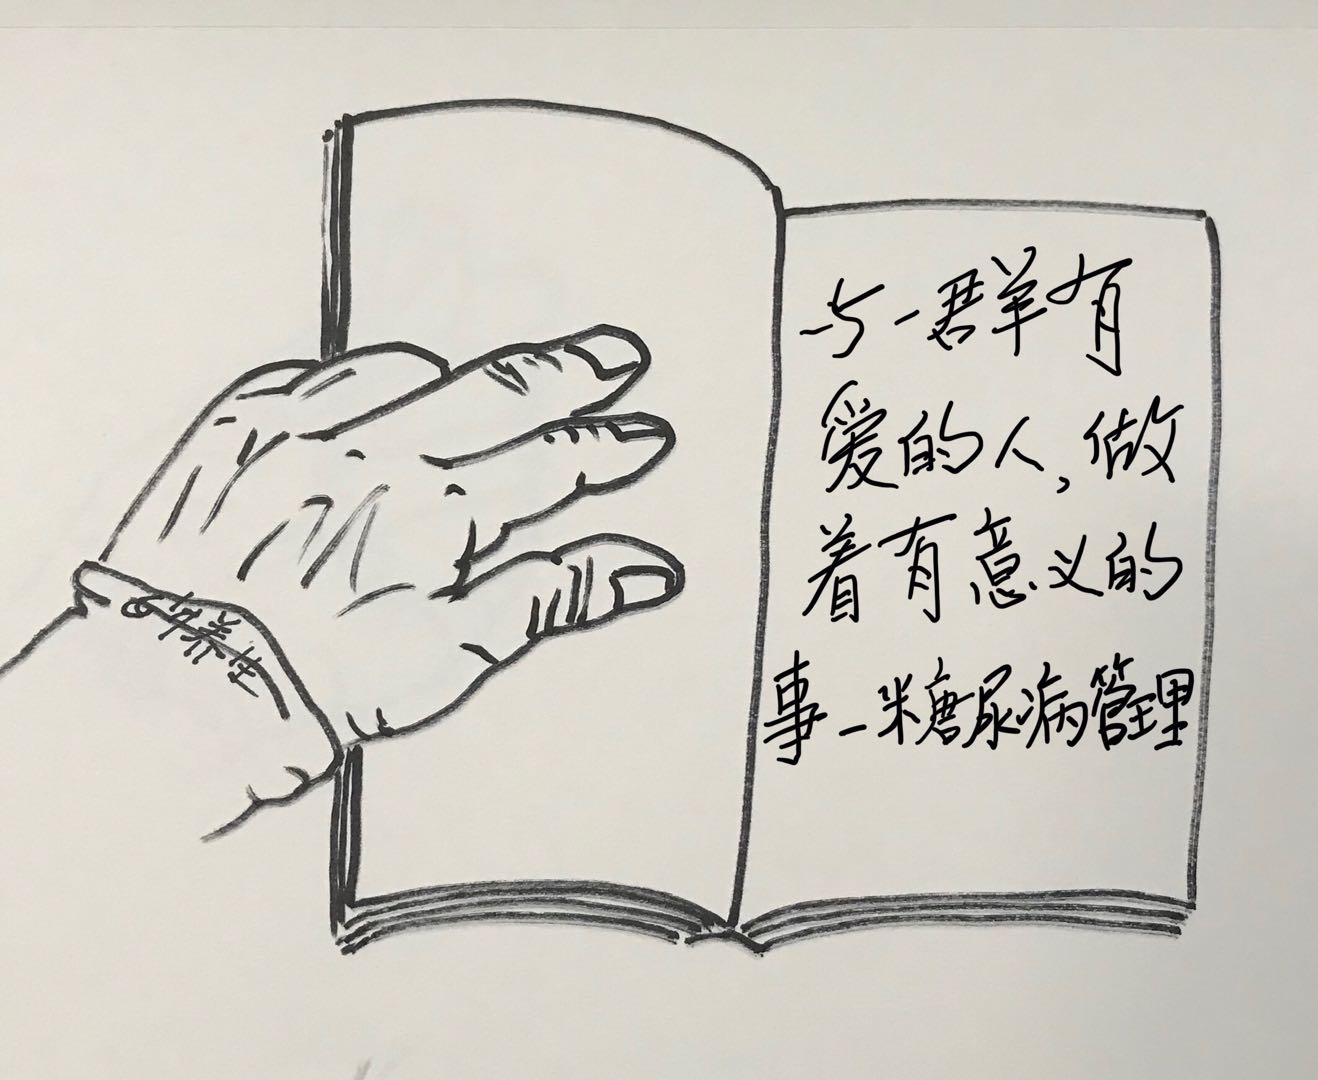 与一群有
爱的人,做
着有意义的
事-糖尿病管理